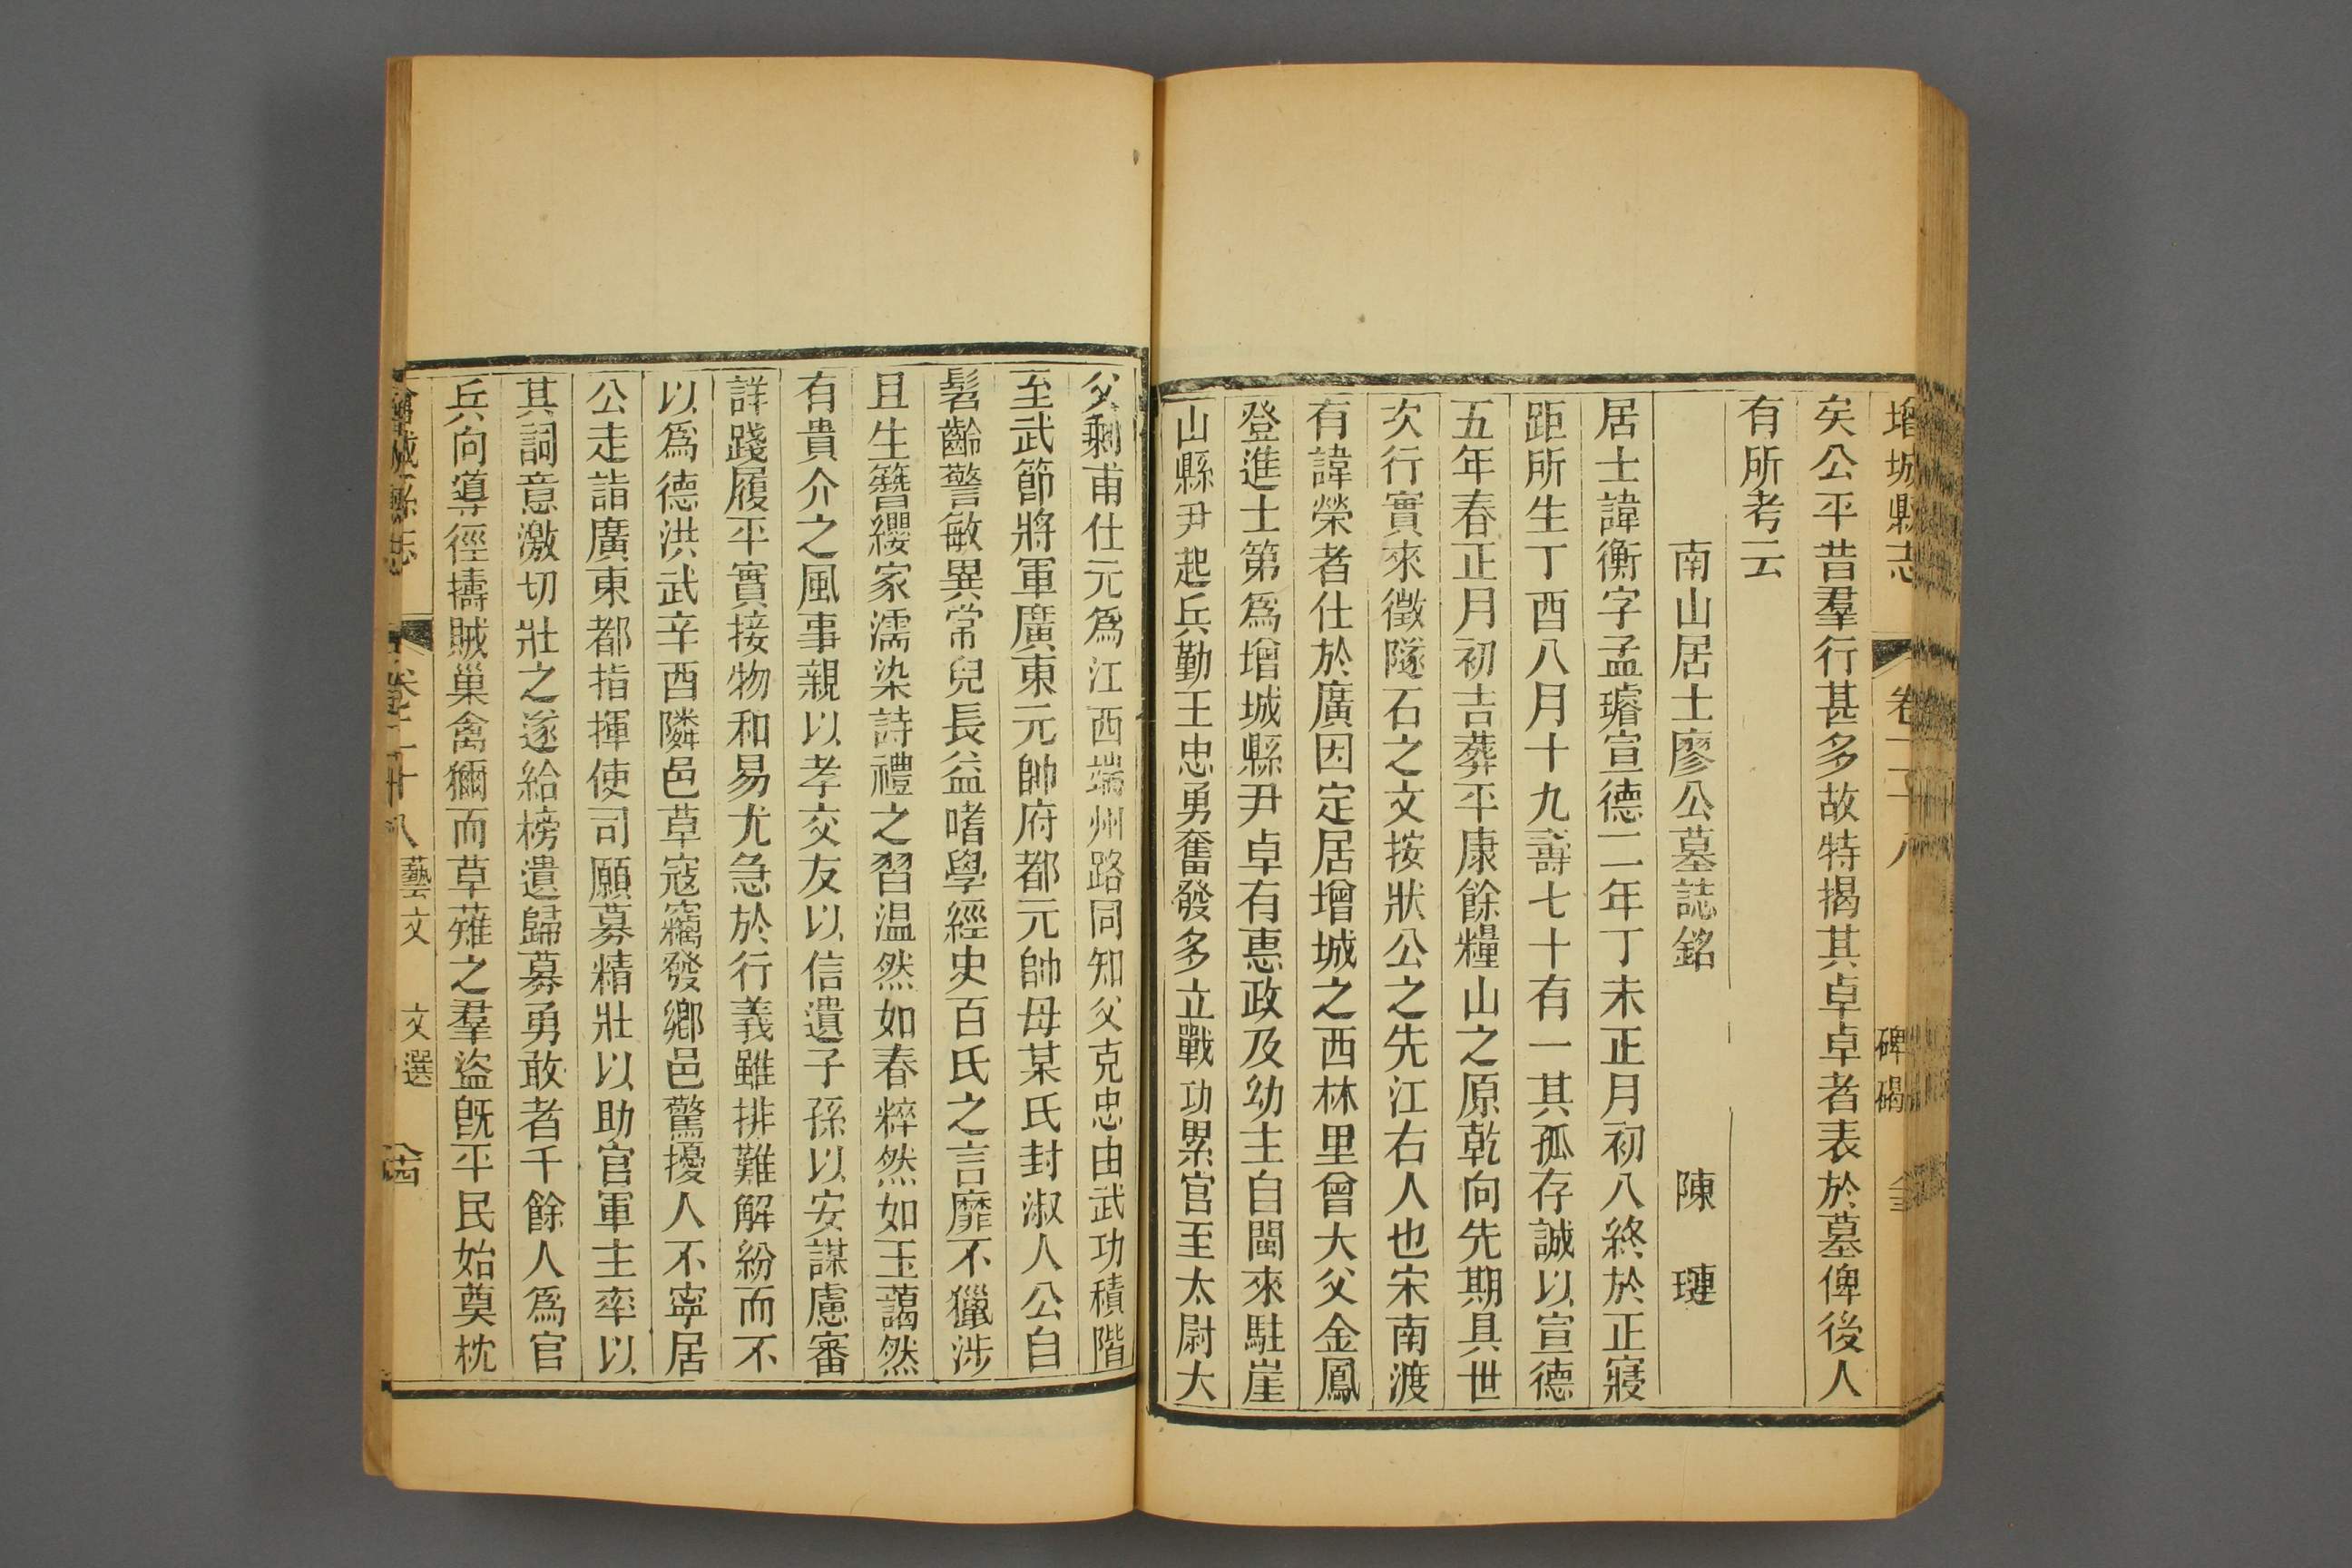 增城縣志 卷二十八 碑碣
矣公平昔羣行甚多故特揭其卓卓者表於墓俾後人
有所考云
南山居士廖公墓誌銘 陳 璉
居士諱衡字孟璿宣德二年丁未正月初八終於正寢
距所生丁酉八月十九壽七十有一其孤存誠以宣德
五年春正月初吉葬平康餘糧山之原乾向先期具世
次行實來徵隧石之文按狀公之先江右人也宋南渡
有諱榮者仕於廣因定居增城之西林里曾大父金鳳
登進士第爲增城縣尹卓有惠政及幼主自閩來駐崖
山縣尹起兵勤王忠勇奮發多立戰功累官至太尉大
父剩甫仕元爲江西端州路同知父克忠由武功積階
至武節將軍廣東元帥府都元帥母某氏封淑人公自
髫齡警敏異常兒長益嗜學經史百氏之言靡不獵涉
且生簪纓家濡染詩禮之習温然如春粹然如玉藹然
有貴介之風事親以孝交友以信遺子孫以安謀慮審
詳踐履平實接物和易尤急於行義雖排難解紛而不
以爲德洪武辛酉隣邑草寇竊發鄉邑驚擾人不寧居
公走詣廣東都指揮使司願募精壯以助官軍主率以
其詞意激切壯之遂給榜遺歸募勇敢者千餘人爲官
兵向導徑擣賊巢禽獮而草薙之羣盜旣平民始奠枕
增城縣志 卷二十八 藝文 文選